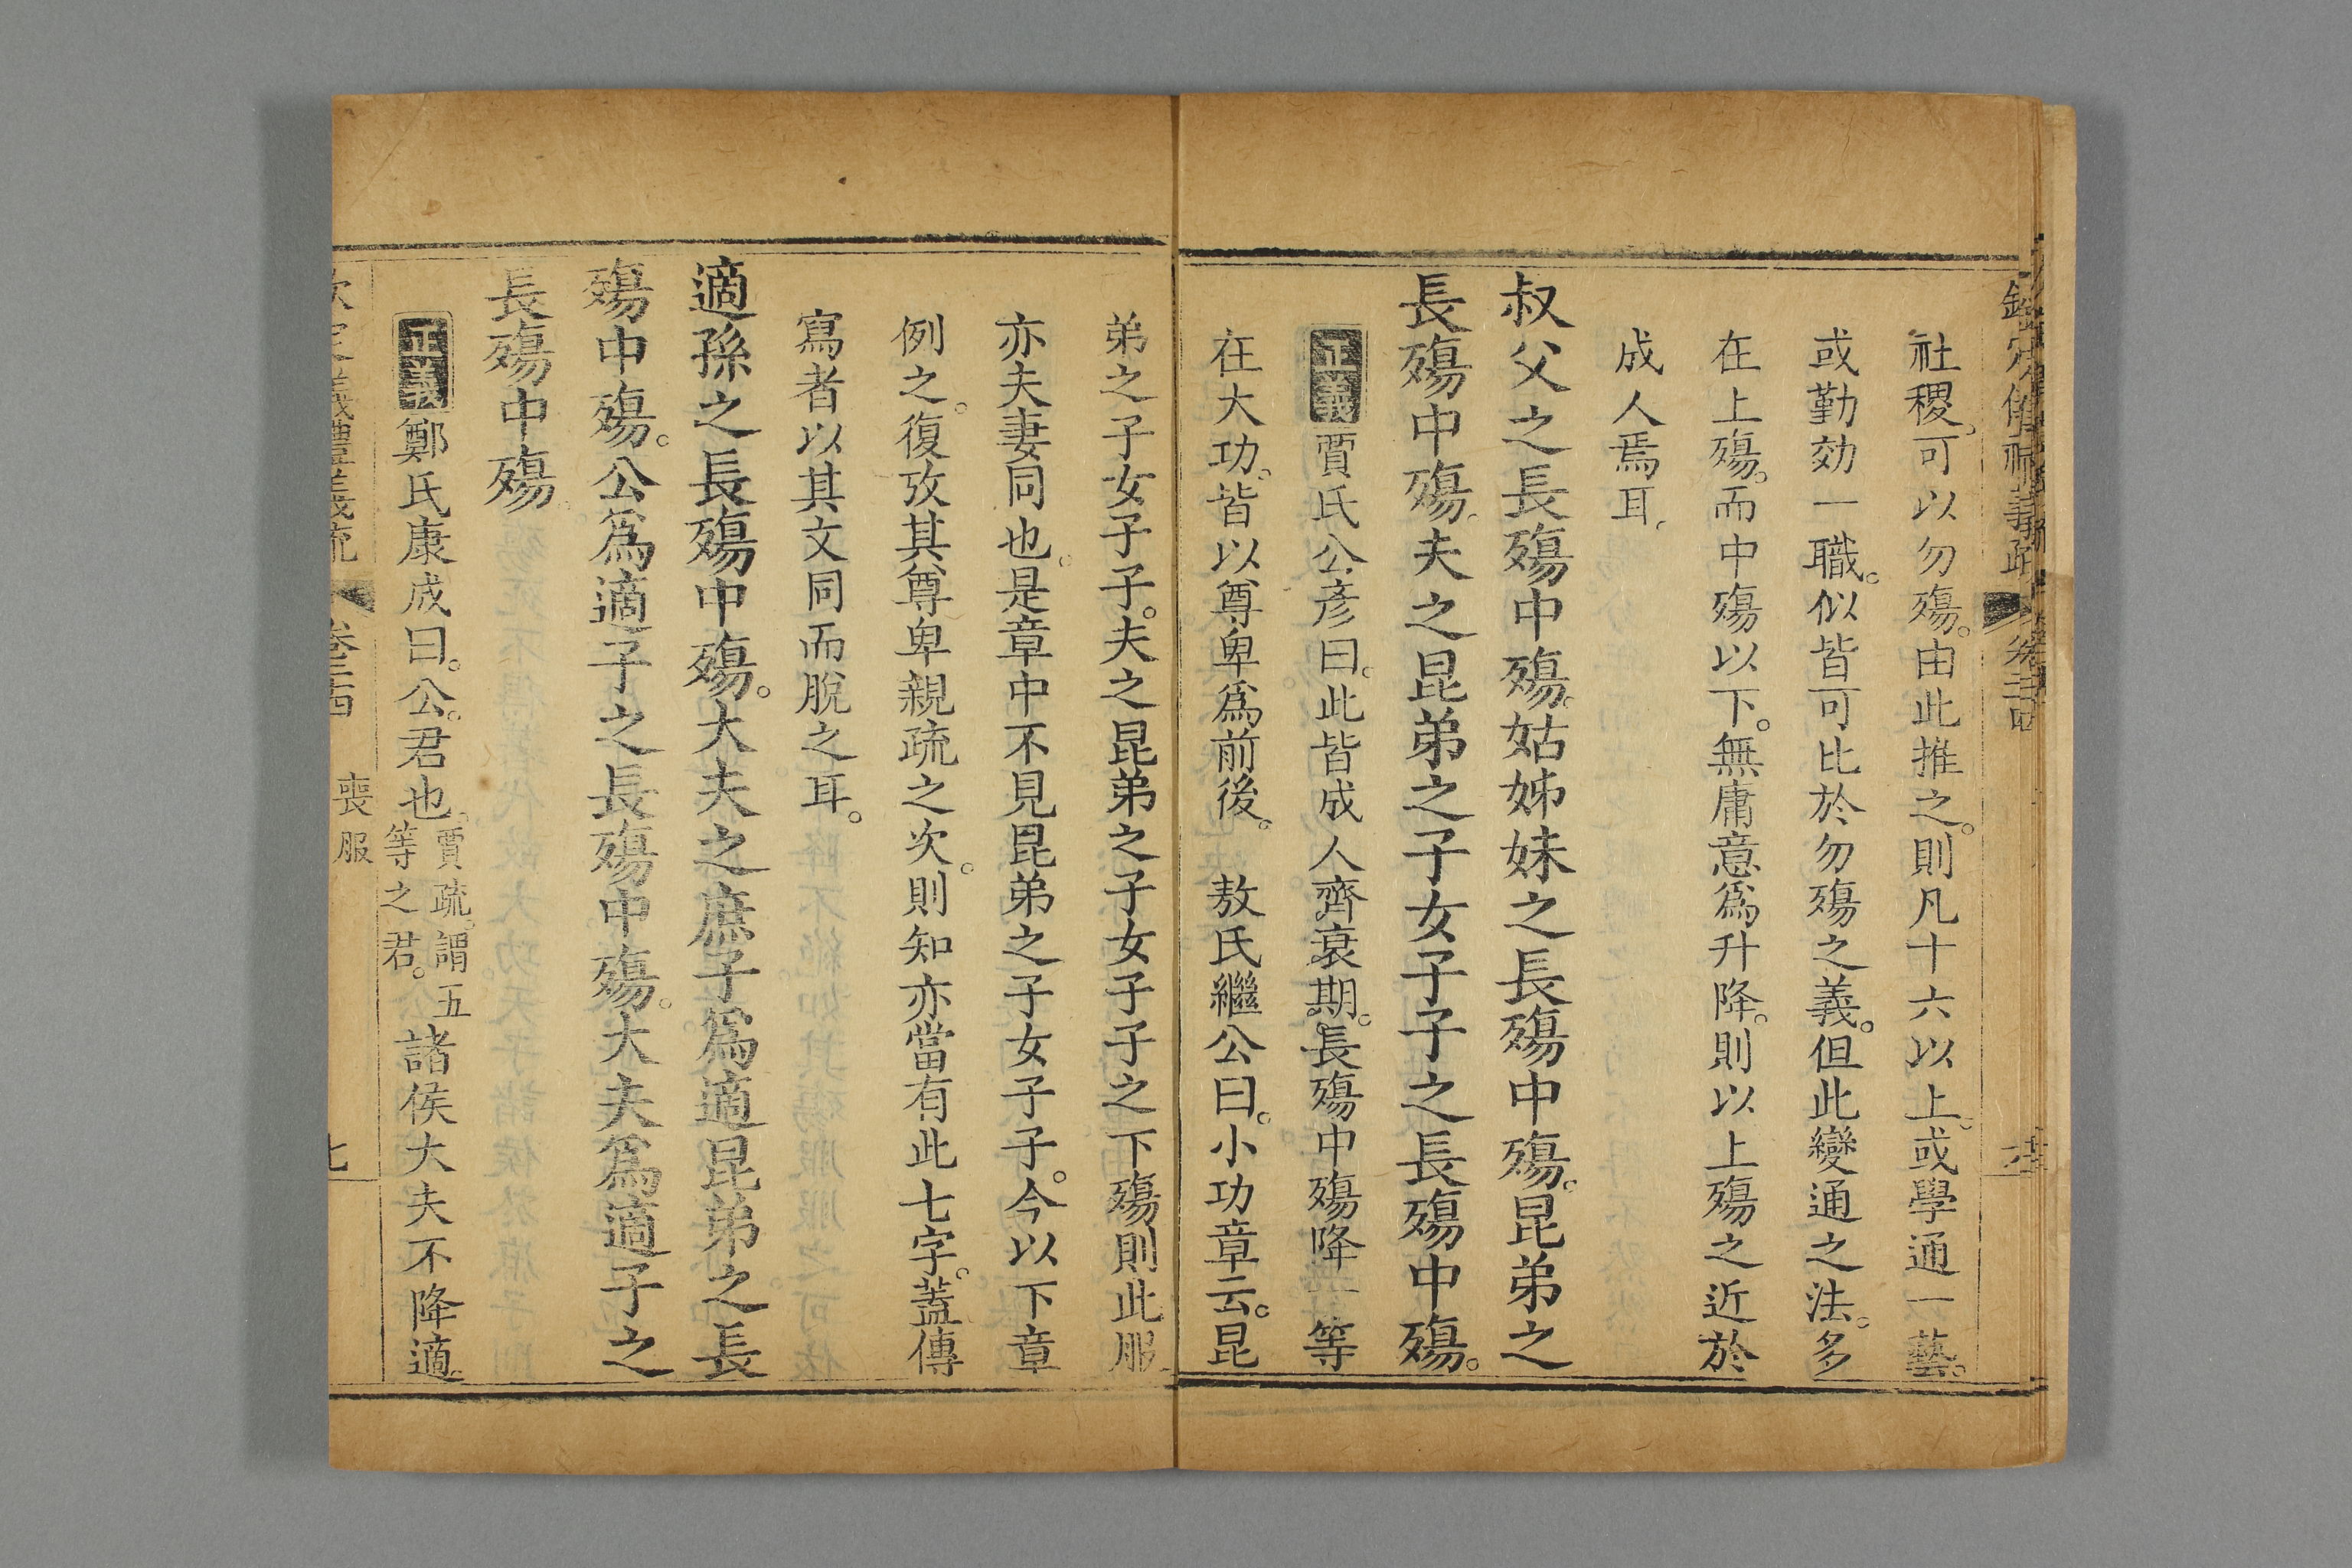 欽定儀禮義疏 卷二十四
社稷可以勿殤。由此推之。則凡十六以上。或學通一藝。
或勤効一職。似皆可比於勿殤之義。但此變通之法。多
在上殤。而中殤以下。無庸意爲升降。則以上殤之近於
成人焉耳。
叔父之長殤中殤。姑姊妹之長殤中殤。昆弟之
長殤中殤。夫之昆弟之子女子子之長殤中殤。
正義 賈氏公彦曰。此皆成人齊衰期。長殤中殤降一等
在大功。皆以尊卑爲前後。 敖氏繼公曰。小功章云。昆
弟之子女子子。夫之昆弟之子女子子之下殤則此服
亦夫妻同也。是章中不見昆弟之子女子子。今以下章
例之。復攷其尊卑親疏之次。則知亦當有此七字。蓋傳
寫者以其文同而脫之耳。
適孫之長殤中殤。大夫之庶子爲適昆弟之長
殤中殤。公爲適子之長殤中殤。大夫爲適子之
長殤中殤
正義 鄭氏康成曰。公。君也。賈疏。謂五等之君。諸侯大夫不降適。
欽定儀禮義疏 卷二十四 喪服 七